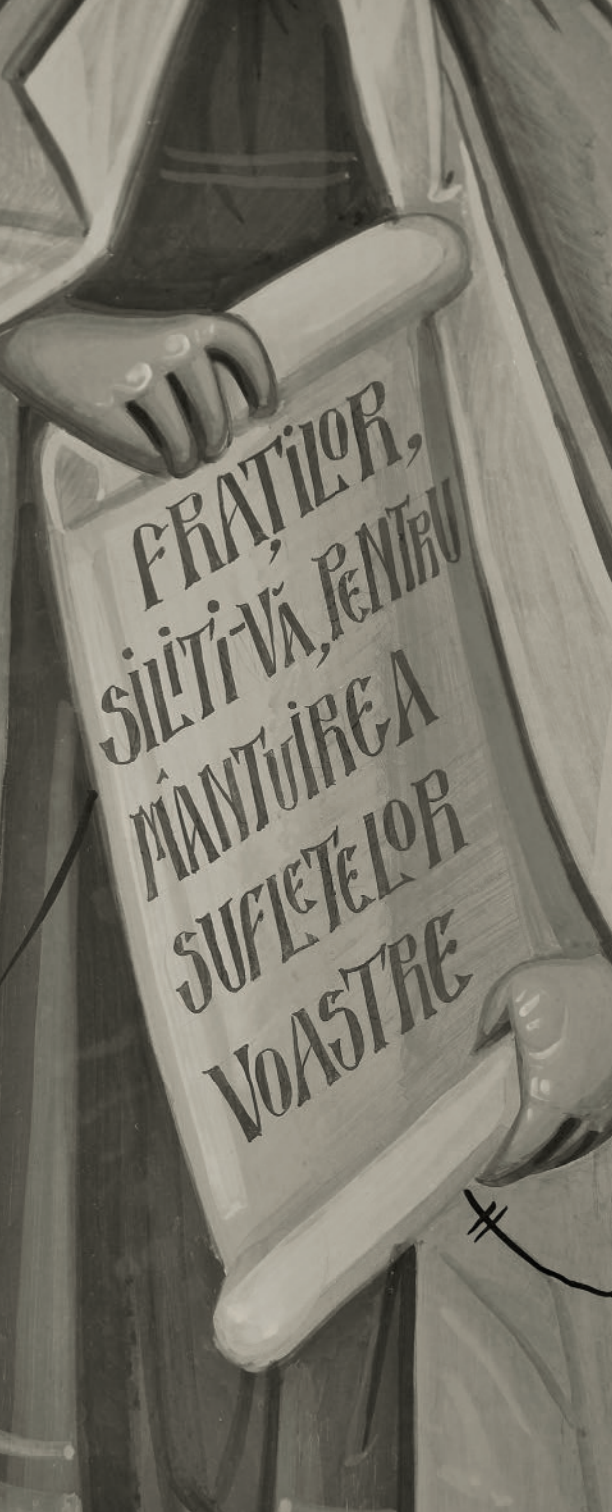 FRAȚILOR,
SILIȚI-VĂ, PENTRU
MÂNTUIREA
SUFLETELOR
VOASTRE